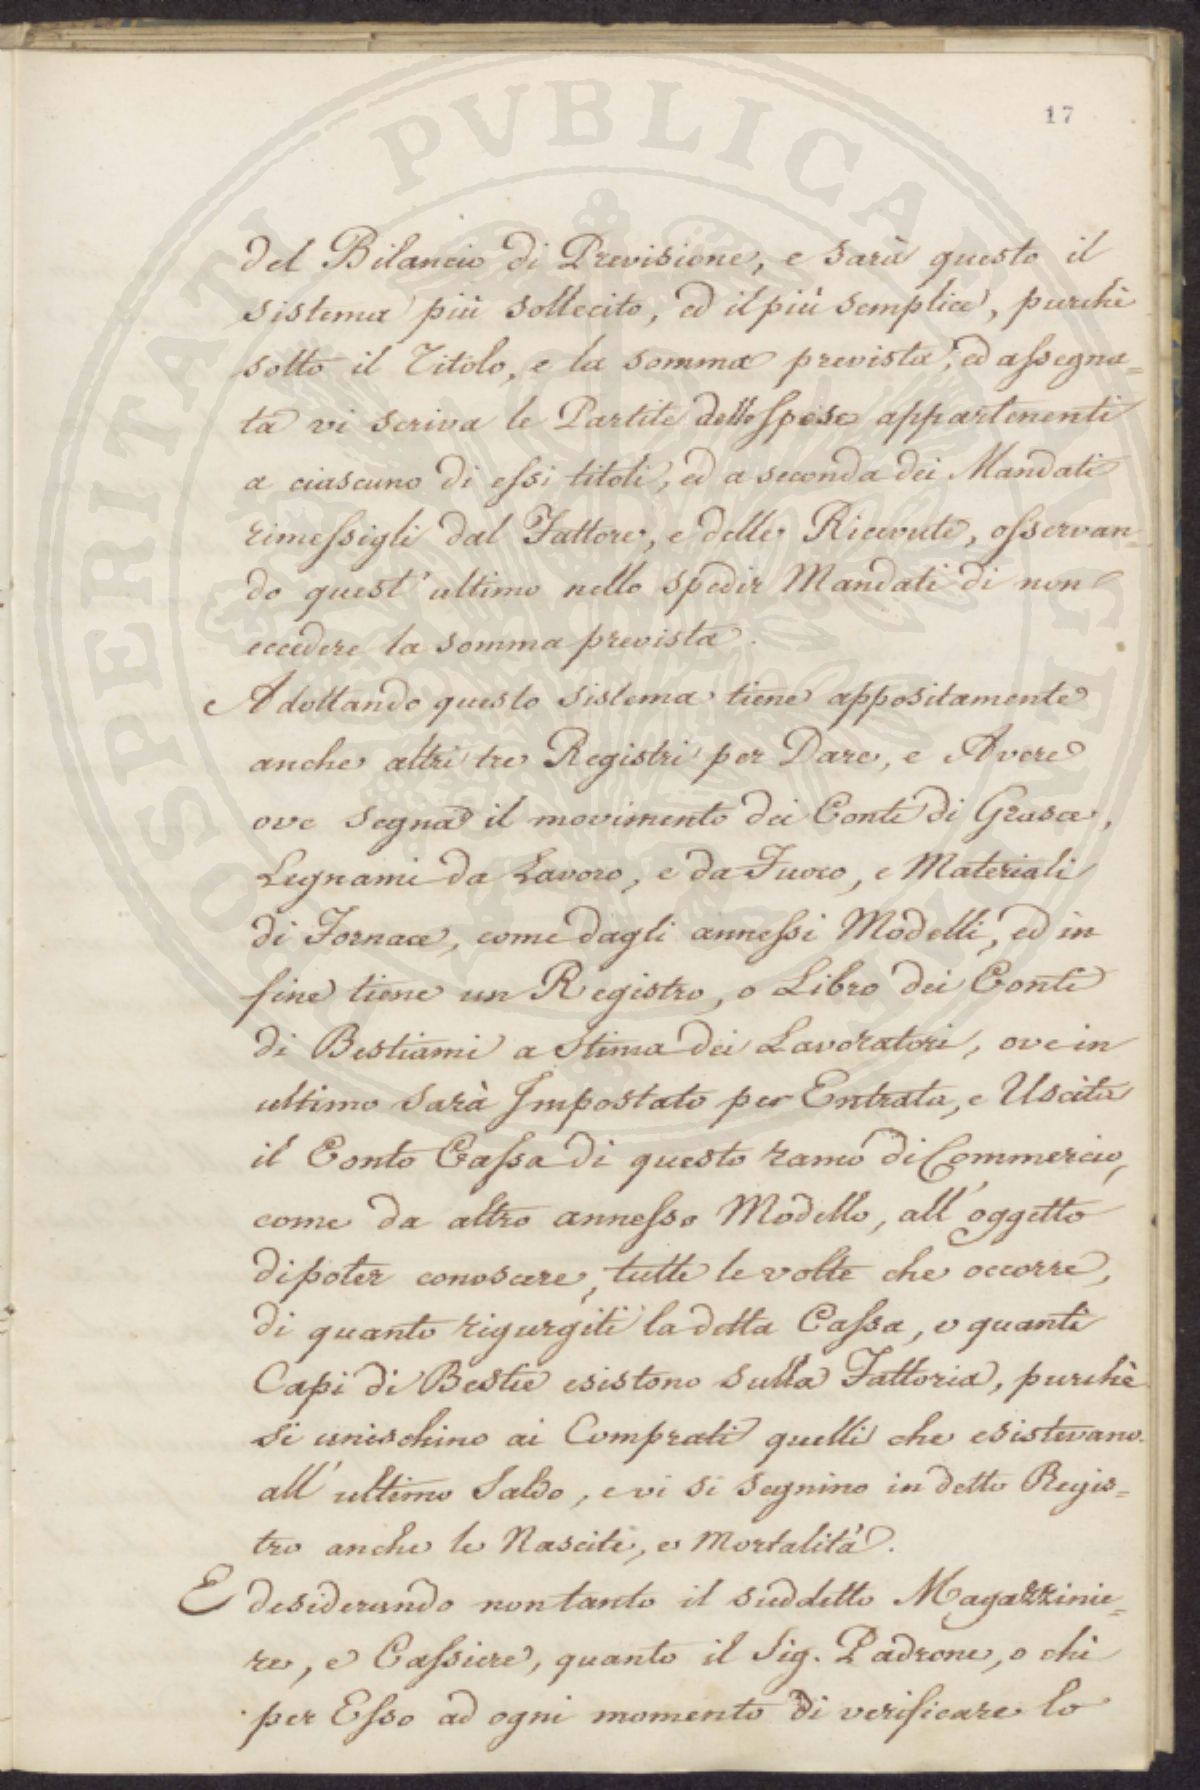 17
del Bilancio di Previsione, e sarà questo il
sistema più sollecito, ed il più semplice, purchè
sotto il Titolo, e la somma prevista, ed assegna=
ta vi scriva le Partite delle Spese appartenenti
a ciascuno di essi titoli, ed a seconda dei Mandati
rimessigli dal Fattore, e delle Ricevute, osservan=
do quest' ultimo nello spedir Mandati di non
eccedere la somma prevista.
Adottando questo sistema tiene appositamente
anche altri tre Registri per Dare, e Avere
ove segna il movimento dei Conti di Grasce,
Legnami da Lavoro, e da Fuoco, e Materiali
di Fornace, come dagli annessi Modelli, ed in
fine tiene un Registro, o Libro dei Conti
di Bestiami a Stima dei Lavoratori, ove in
ultimo sarà Impostato per Entrata, e Uscita
il Conto Cassa di questo ramo di Commercio,
come da altro annesso Modello, all' oggetto
di poter conoscere, tutte le volte che occorre,
di quanto rigurgiti la detta Cassa, e quanti
Capi di Bestie esistono sulla Fattoria, purchè
si unischino ai Comprati quelli che esistevano
all' ultimo Saldo, e vi si segnino in detto Regis=
tro anche le Nascite, e Mortalità.
E desiderando non tanto il suddetto Magazzinie=
re, e Cassiere, quanto il Sig. Padrone, o chi
per Esso ad ogni momento di verificare lo
PROSPERITATI PVBLICAE AVGENDAE